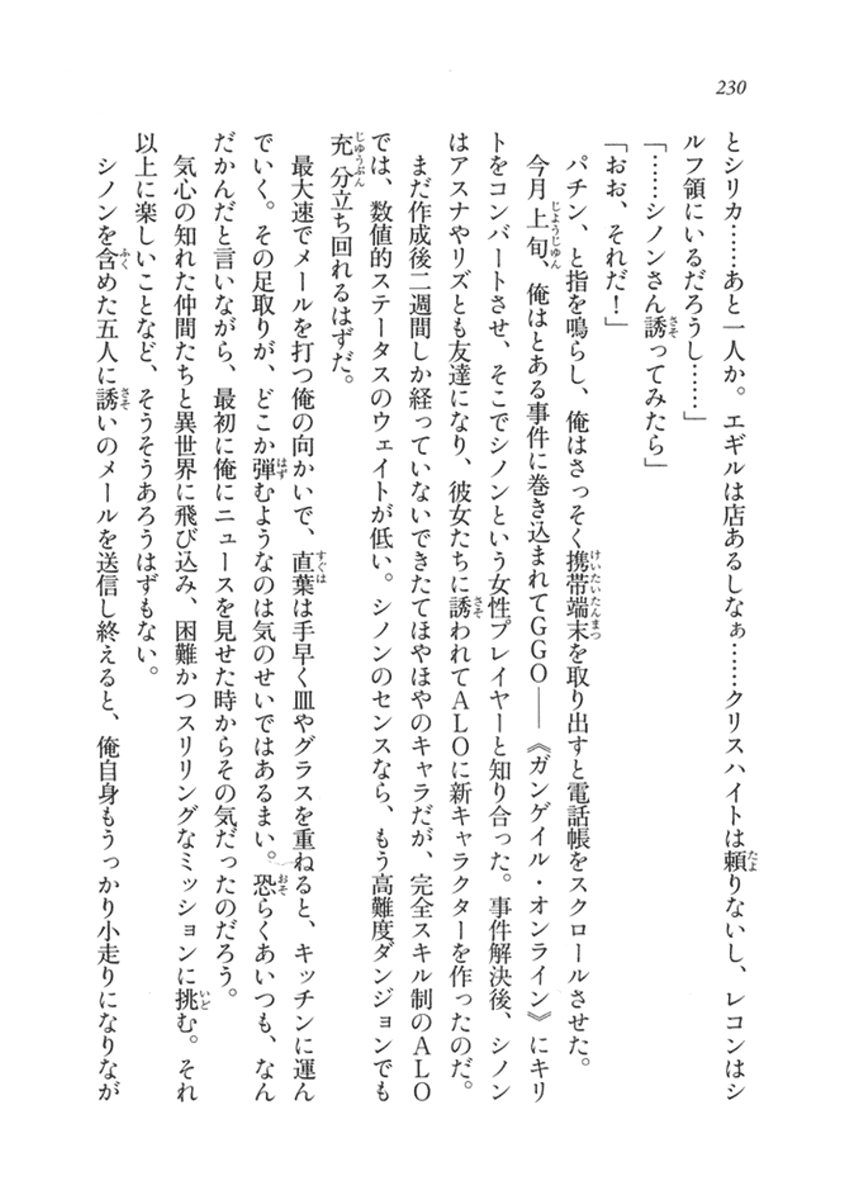 230
とシリカ……あと一人か。エギルは店あるしなぁ……クリスハイトは頼りないし、レコンはシ
ルフ領にいるだろうし……」
「……シノンさん誘ってみたら」
「おお、それだ！」
パチン、と指を鳴らし、俺はさっそく携帯端末を取り出すと電話帳をスクロールさせた。
今月上旬、俺はとある事件に巻き込まれてＧＧＯ――《ガンゲイル・オンライン》にキリ
トをコンバートさせ、そこでシノンという女性プレイヤーと知り合った。事件解決後、シノン
はアスナやリズとも友達になり、彼女たちに誘われてＡＬＯに新キャラクターを作ったのだ。
まだ作成後二週間しか経っていないできたてほやほやのキャラだが、完全スキル制のＡＬＯ
では、数値的ステータスのウェイトが低い。シノンのセンスなら、もう高難度ダンジョンでも
充分立ち回れるはずだ。
最大速でメールを打つ俺の向かいで、直葉は手早く皿やグラスを重ねると、キッチンに運ん
でいく。その足取りが、どこか弾むようなのは気のせいではあるまい。恐らくあいつも、なん
だかんだと言いながら、最初に俺にニュースを見せた時からその気だったのだろう。
気心の知れた仲間たちと異世界に飛び込み、困難かつスリリングなミッションに挑む。それ
以上に楽しいことなど、そうそうあろうはずもない。
シノンを含めた五人に誘いのメールを送信し終えると、俺自身もうっかり小走りになりなが